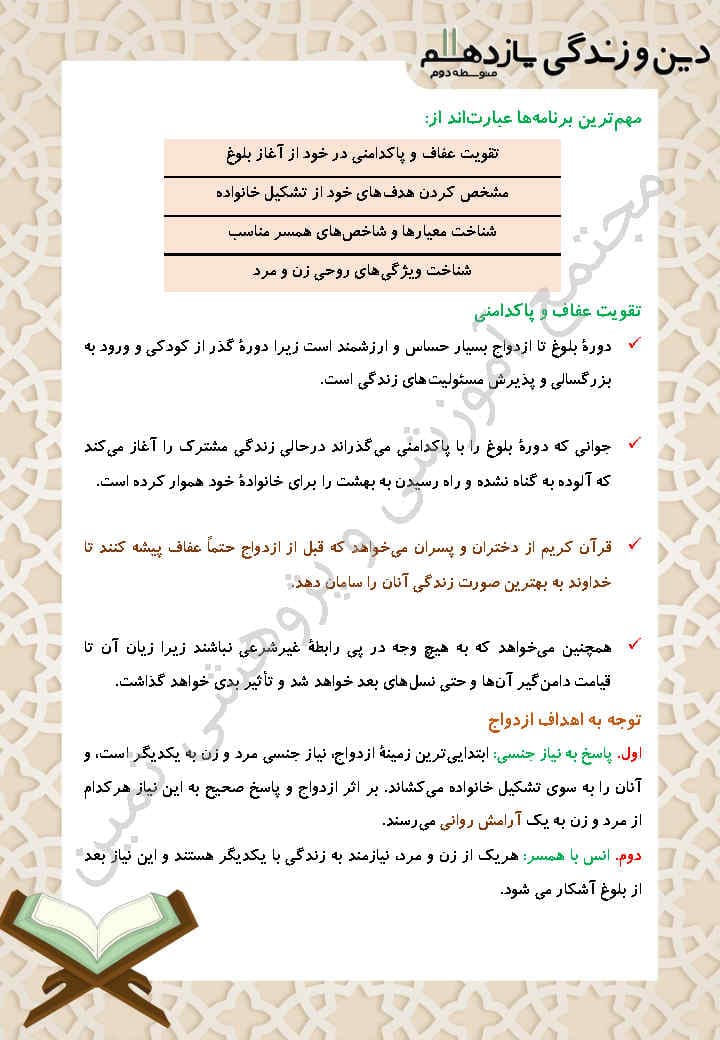 دین و زندگی یازدهم
متوسطه دوم
مهم‌ترین برنامه‌ها عبارت‌اند از:
تقویت عفاف و پاکدامنی در خود از آغاز بلوغ
مشخص کردن هدف‌های خود از تشکیل خانواده
شناخت معیارها و شاخص‌های همسر مناسب
شناخت ویژگی‌های روحی زن و مرد
تقویت عفاف و پاکدامنی
✓ دورهٔ بلوغ تا ازدواج بسیار حساس و ارزشمند است زیرا دورهٔ گذر از کودکی و ورود به
بزرگسالی و پذیرش مسئولیت‌های زندگی است.
✓ جوانی که دورهٔ بلوغ را با پاکدامنی می‌گذراند درحالی زندگی مشترک را آغاز می‌کند
که آلوده به گناه نشده و راه رسیدن به بهشت را برای خانوادهٔ خود هموار کرده است.
✓ قرآن کریم از دختران و پسران می‌خواهد که قبل از ازدواج حتماً عفاف پیشه کنند تا
خداوند به بهترین صورت زندگی آنان را سامان دهد.
✓ همچنین می‌خواهد که به هیچ وجه در پی رابطهٔ غیرشرعی نباشند زیرا زیان آن تا
قیامت دامن‌گیر آن‌ها و حتی نسل‌های بعد خواهد شد و تأثیر بدی خواهد گذاشت.
توجه به اهداف ازدواج
اول. پاسخ به نیاز جنسی: ابتدایی‌ترین زمینهٔ ازدواج، نیاز جنسی مرد و زن به یکدیگر است، و
آنان را به سوی تشکیل خانواده می‌کشاند. بر اثر ازدواج و پاسخ صحیح به این نیاز هرکدام
از مرد و زن به یک آرامش روانی می‌رسند.
دوم. انس با همسر: هریک از زن و مرد، نیازمند به زندگی با یکدیگر هستند و این نیاز بعد
از بلوغ آشکار می شود.
مجتمع آموزشی و پژوهشی ثمین